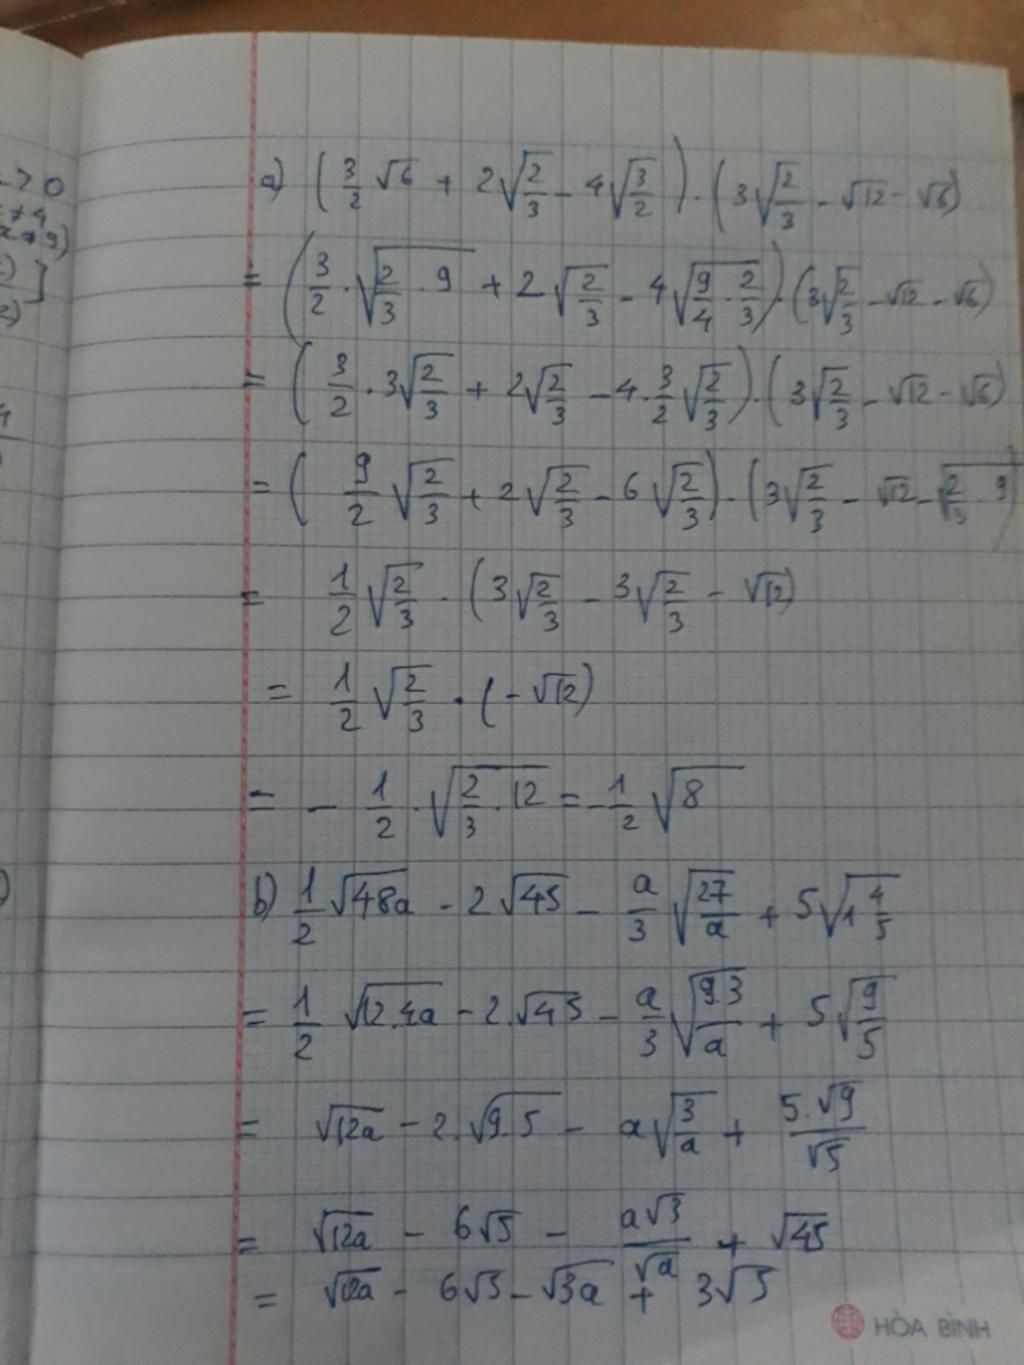 > 0
≠ 4
x ≠ 9)
a) (3/2 √6 + 2√(2/3) - 4√(3/2)) · (3√(2/3) - √12 - √6)
= (3/2 · √(2/3 · 9) + 2√(2/3) - 4√(9/4 · 2/3)) · (3√(2/3) - √12 - √6)
= (3/2 · 3√(2/3) + 2√(2/3) - 4 · 3/2 √(2/3)) · (3√(2/3) - √12 - √6)
= (9/2 √(2/3) + 2√(2/3) - 6√(2/3)) · (3√(2/3) - √12 - √(2/3 · 9))
= 1/2 √(2/3) · (3√(2/3) - 3√(2/3) - √12)
= 1/2 √(2/3) · (-√12)
= - 1/2 · √(2/3 · 12) = -1/2 √8
b) 1/2 √(48a) - 2√45 - a/3 √(27/a) + 5√(1 4/5)
= 1/2 √(12.4a) - 2.√45 - a/3 √(9.3/a) + 5√(9/5)
= √(12a) - 2.√(9.5) - a√(3/a) + 5.√9/√5
= √(12a) - 6√5 - a√3/√a + √45
= √(12a) - 6√5 - √(3a) + 3√5
HÒA BÌNH